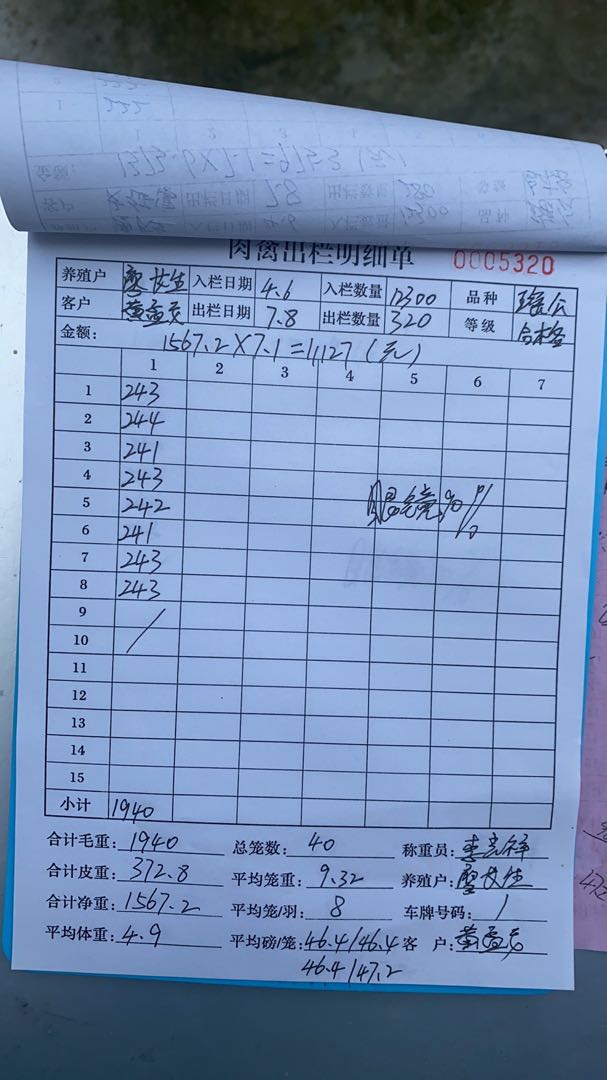 肉禽出栏明细单 0005320
养殖户 廖女生 入栏日期 4.6 入栏数量 12300 品种
客户 出栏日期 7.8 出栏数量 320 等级 合格
金额: 1567.2×7.1=11127(元)
1 2 3 4 5 6 7
1 243
2 244
3 241
4 243
5 242
6 241
7 243
8 243
9
10
11
12
13
14
15
小计 1940
合计毛重: 1940 总笼数: 40 称重员:
合计皮重: 372.8 平均笼重: 9.32 养殖户: 廖女生
合计净重: 1567.2 平均笼/羽: 8 车牌号码: 1
平均体重: 4.9 平均磅/笼: 46.4/46.4 客 户:
46.4/47.2